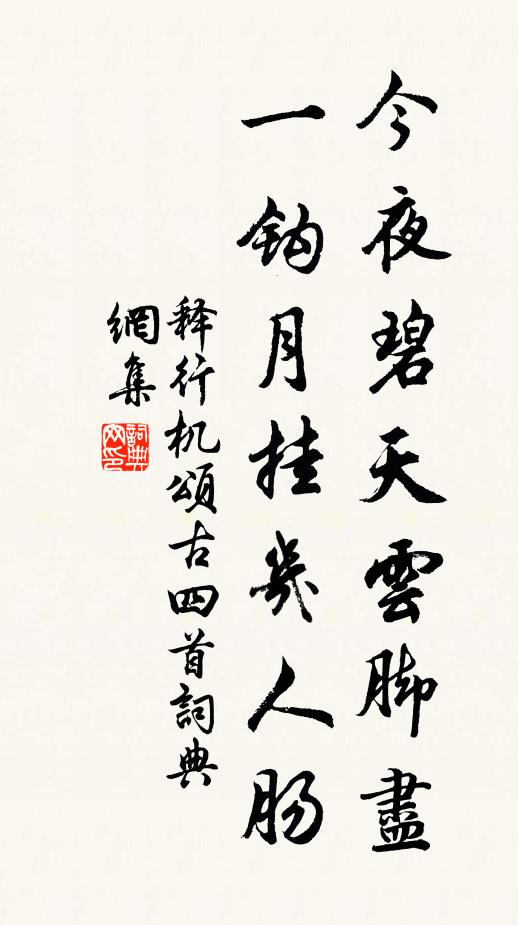 今夜碧天雲脚盡
一鈎月挂幾人肠
释行机頌古四首詞典
網集
詞典网印